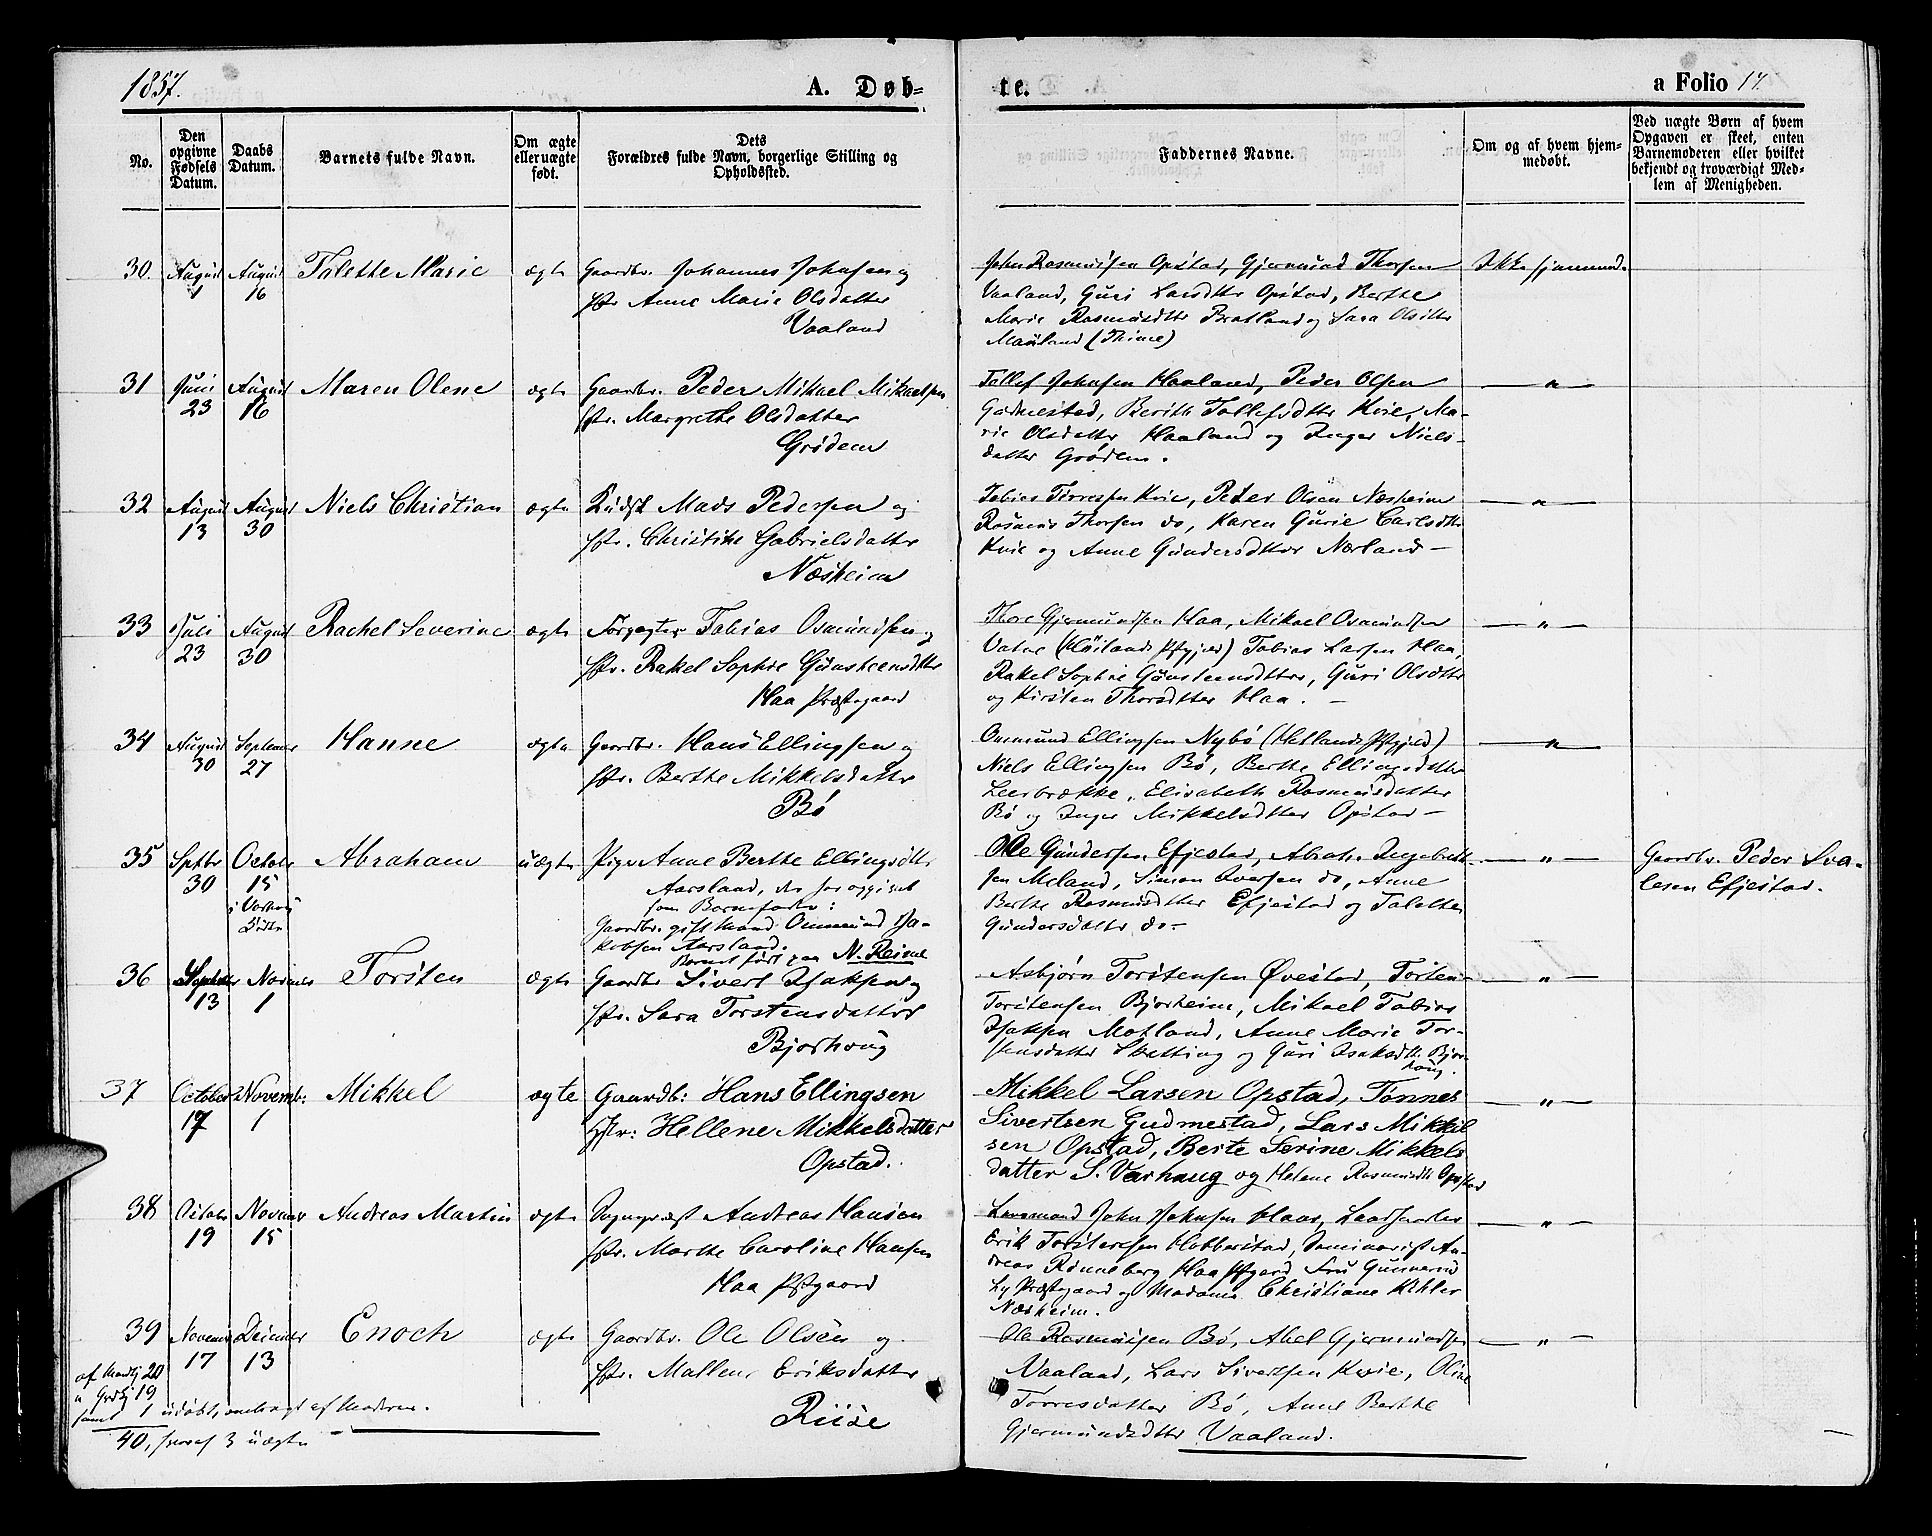 1857.
A. Døb-
te.
a Folio 17.
No.
Den opgivne Fødsels Datum.
Daabs Datum.
Barnets fulde Navn.
Om ægte eller uægte født.
Dets Forældres fulde Navn, borgerlige Stilling og Opholdssted.
Faddernes Navne.
Om og af hvem hjemmedøbt.
Ved uægte Børn af hvem Opgaven er skeet, enten Barnemoderen eller hvilket bekjendt og troværdigt Medlem af Menigheden.
30. August 1 August 16 Talette Marie ægte Gaardbr. Johannes Johnsen og
Hstr. Anne Marie Olsdatter
Vaaland
John Rasmussen Opstad, Gjermund Thorsen
Vaaland, Guri Larsdttr Opstad, Berthe
Marie Rasmusdttr Bratland og Sara Olsdttr
(Thime)
Ikke hjemmed.
31 Juni 23 August 16 Maren Olene ægte Gaardbr. Peder Mikael Mikaelsen
Hstr. Margrethe Olsdatter
Grødem
Tollef Johnsen Haaland, Peder Olsen
Gudmestad, Berith Tollefsdttr Kvie, Ma-
rie Olsdatter Haaland og Inger Niels-
datter Grødem.
— " —
32 August 13 August 30 Niels Christian ægte Mads Pedersen og
Hstr. Christine Gabrielsdatter
Næsheim
Tobias Torresen Kvie, Peter Olsen Næsheim
Rasmus Thorsen do, Karen Gurie Carlsdttr
Kvie og Anne Gundersdtter Nærland —
— " —
33 Juli 23 August 30 Rachel Severine ægte Forpagter Tobias Osmundsen og
Hstr. Rakel Sophie Gunsteensdttr
Haa Præstegaard
Thore Gjermundsen Haa, Mikael Osmundsen
Vatne (Høilands Pstgjeld) Tobias Larsen Haa,
Rakel Sophie Gunsteensdttr, Guri Olsdttr
og Kirsten Thorsdtter Haa. —
— " —
34 August 30 September 27 Hanne ægte Gaardbr. Hans Ellingsen og
Hstr. Berthe Mikkelsdatter
Bø
Osmund Ellingsen Nybø (Hetlands Pstgjeld)
Niels Ellingsen Bø, Berthe Ellingsdatter
Leerbrække, Elisabeth Rasmusdatter
Bø og Inger Mikkelsdtter Opstad —
— " —
35 Septbr 30 Octobr 15 i Varhoug Abraham uægte Pige Anne Berthe Ellingsdttr
Aarsland, der har opgivet
som Barnefader:
Gaardbr. gift Mand Ommund Ja-
kobsen Aarsland.
Barnet født paa N. Reime
Ole Gundersen Efjestad, Abrah. Ingebret-
sen Meland, Simon Iversen do, Anne
Berthe Rasmusdtter Efjestad og Talette
Gundersdatter do —
— " —
Gaardbr. Peder Sva-
lesen Efjestad.
36 September 13 November 1 Torsten ægte Gaardbr Sivert Isaksen og
Hstr. Sara Torstensdatter
Bjorhoug
Asbjørn Torstensen Øvestad, Torsten
Torstensen Bjorheim, Mikael Tobias
Isaksen Motland, Anne Marie Tor-
stensdatter Skatting og Guri Isaksdtt. Bjor-
houg.
— " —
37 October 17 Novemb: 1 Mikkel ægte Gaardb: Hans Ellingsen
Hstr: Hellene Mikkelsdatter
Opstad.
Mikkel Larsen Opstad, Tønnes
Sivertsen Gudmestad, Lars Mikkel
sen Opstad, Berte Serine Mikkels
datter S. Varhaug og Helene Rasmusdtt Opstad
— " —
38 Octobr 19 November 15 Andreas Martin ægte Sogneprest Andreas Hansen
Hstr. Marthe Caroline Hansen
Haa Pstgaard
Lensmand John Johnsen Haar, Landhandler
Erik Torstensen Hobberstad, Seminarist An-
dreas Rønneberg Haa Pstgaard Fru Gunnerud
Ly Præstegaard og Madame Christiane Kahler
Næsheim.
— " —
39 November 17 December 13 Enoch ægte Gaardbr. Ole Olsen og
Hstr. Mallene Eriksdatter
Riise
Ole Rasmussen Bø, Abel Gjermundsen
Vaaland, Lars Sivertsen Kvie, Oline
Torresdatter Bø, Anne Berthe
Gjermundsdtter Vaaland.
— " —
af Mandkj 20
" Qvdkj 19
samt 1 udøbt, af Moderen.
40, hvoraf 3 uægte